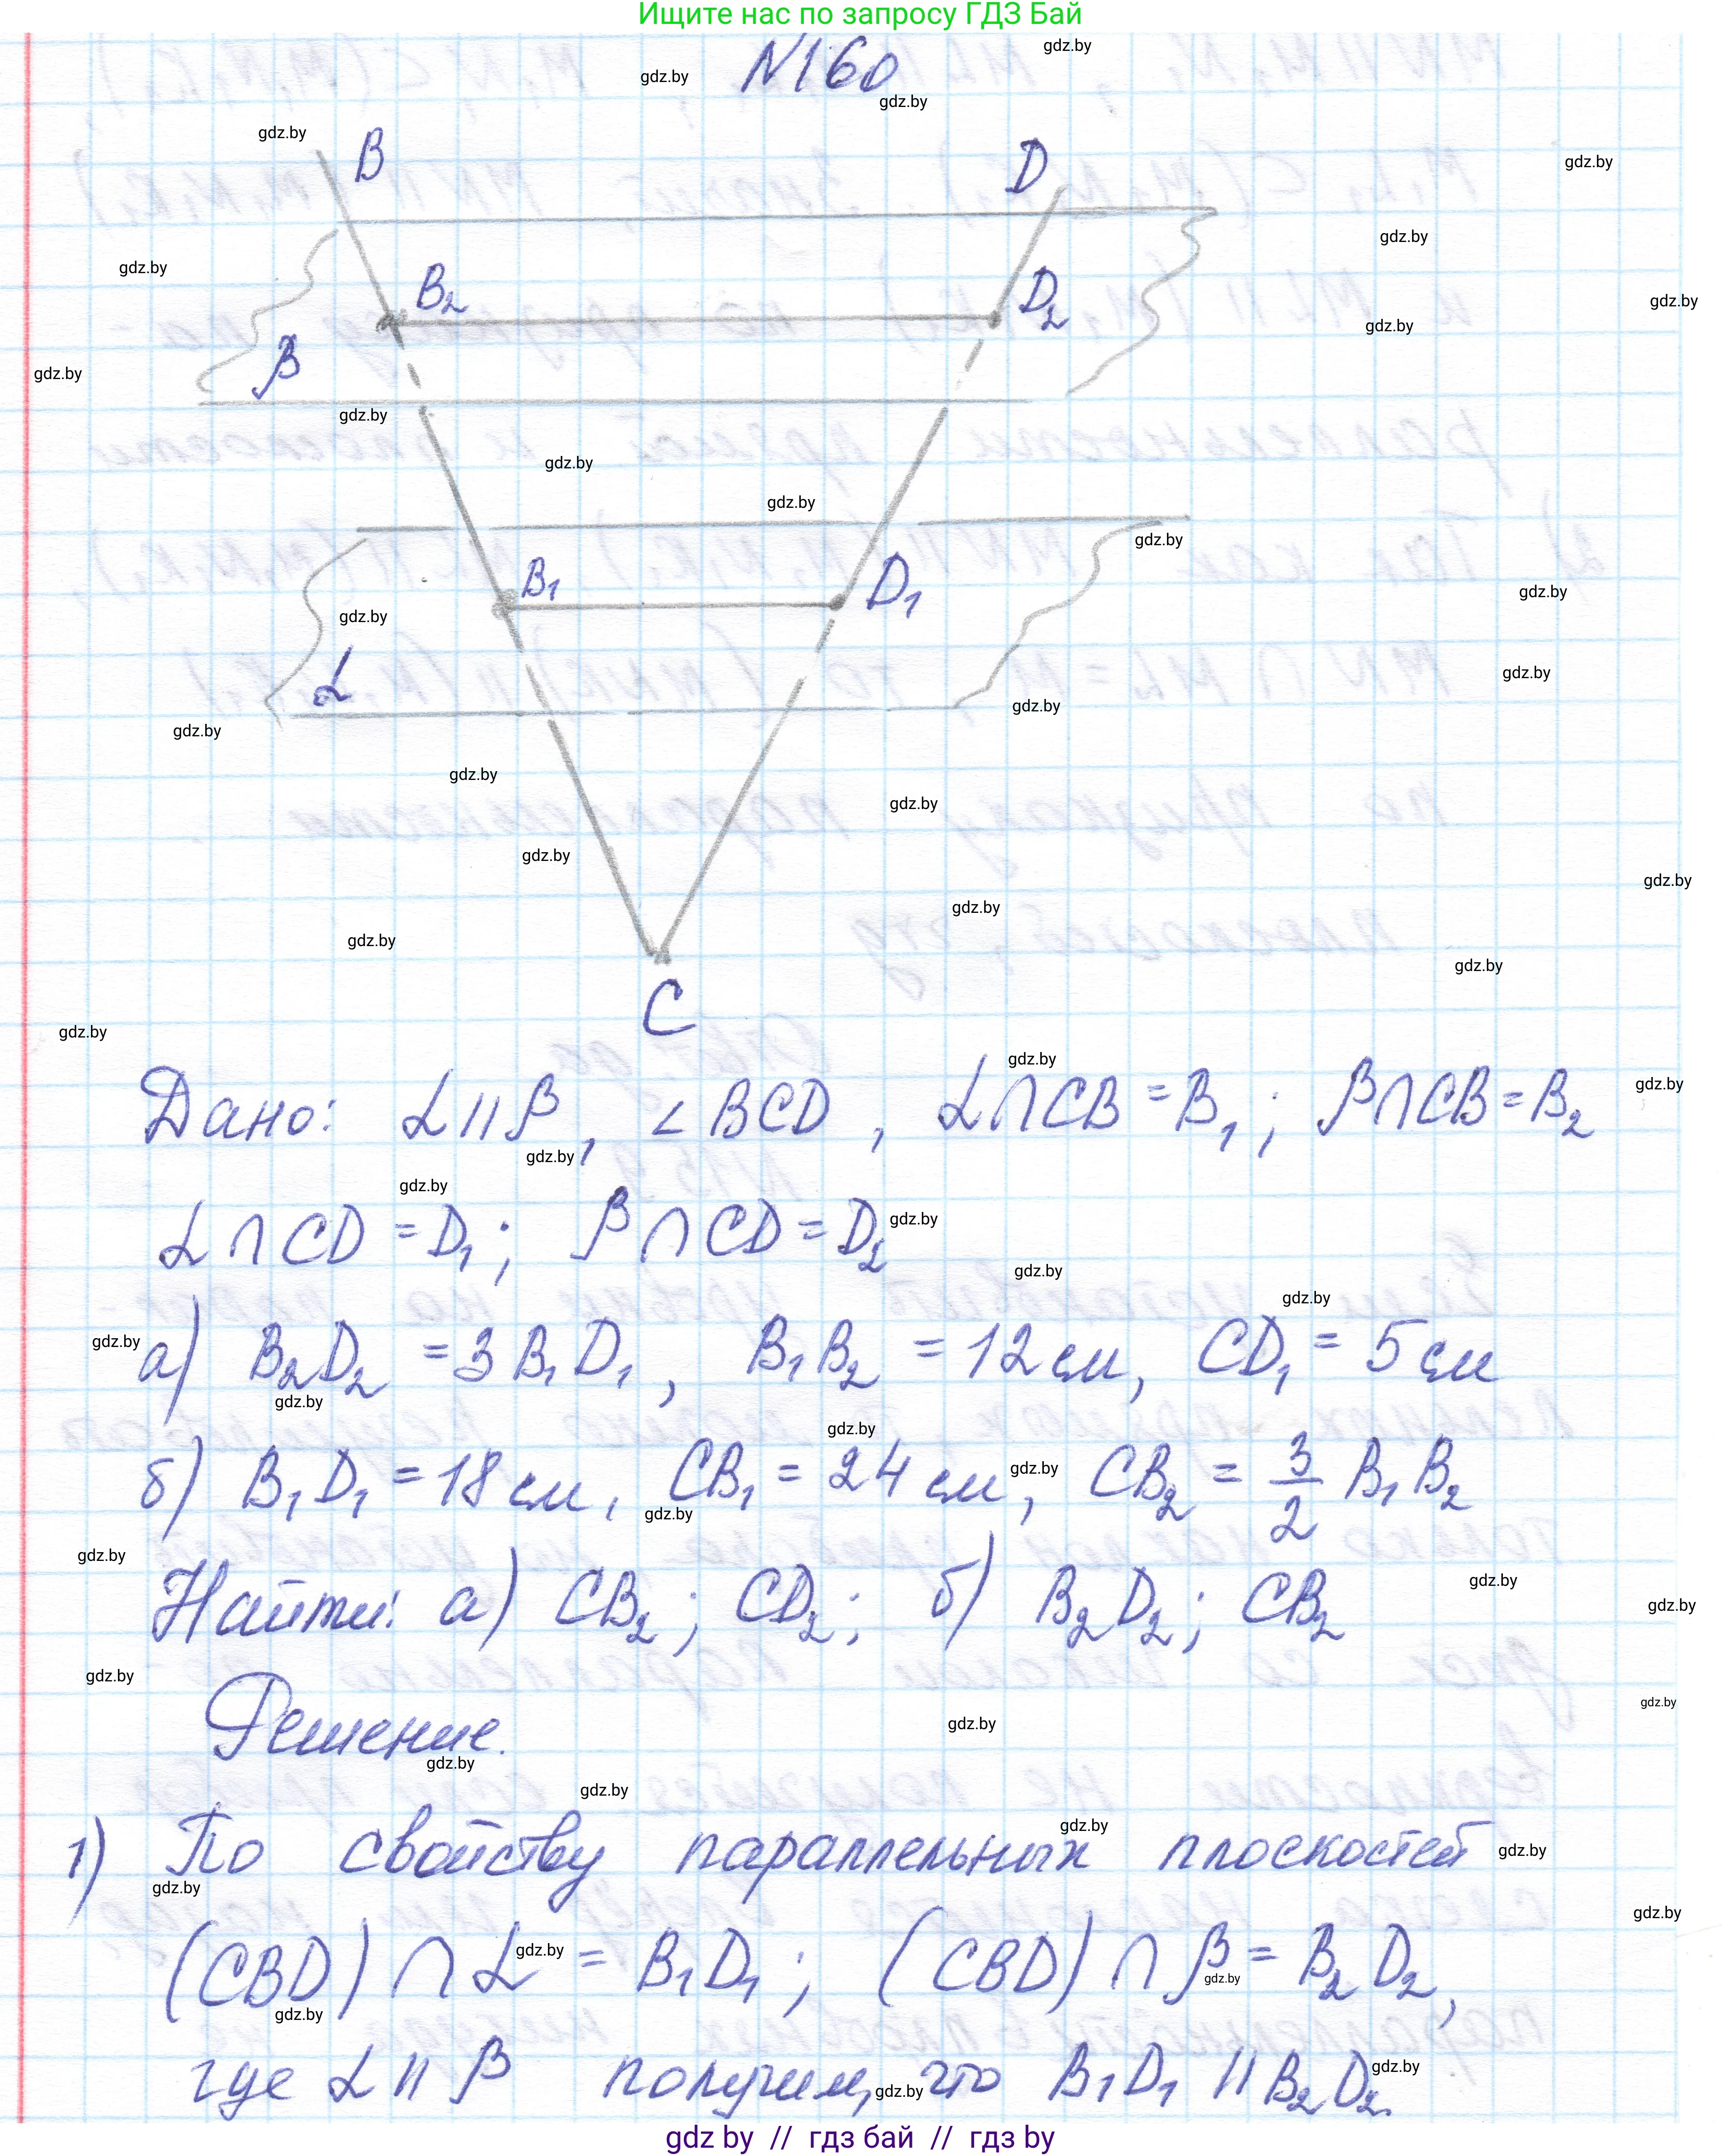 Ищите нас по запросу ГДЗ Бай
N160
B
D
B₂
D₂
β
B₁
D₁
α
C
Дано: α || β, ∠BCD, α∩CB = B₁; β∩CB = B₂
α∩CD = D₁; β∩CD = D₂
а) B₂D₂ = 3B₁D₁, B₁B₂ = 12 см, CD₁ = 5 см
б) B₁D₁ = 18 см, CB₁ = 24 см, CB₂ = 3/2 B₁B₂
Найти: а) CB₂; CD₂; б) B₂D₂; CB₂
Решение.
1) По свойству параллельных плоскостей
(CBD) ∩ α = B₁D₁; (CBD) ∩ β = B₂D₂,
где α || β получим, что B₁D₁ || B₂D₂.
gdz by // гдз бай // гдз by
gdz.by